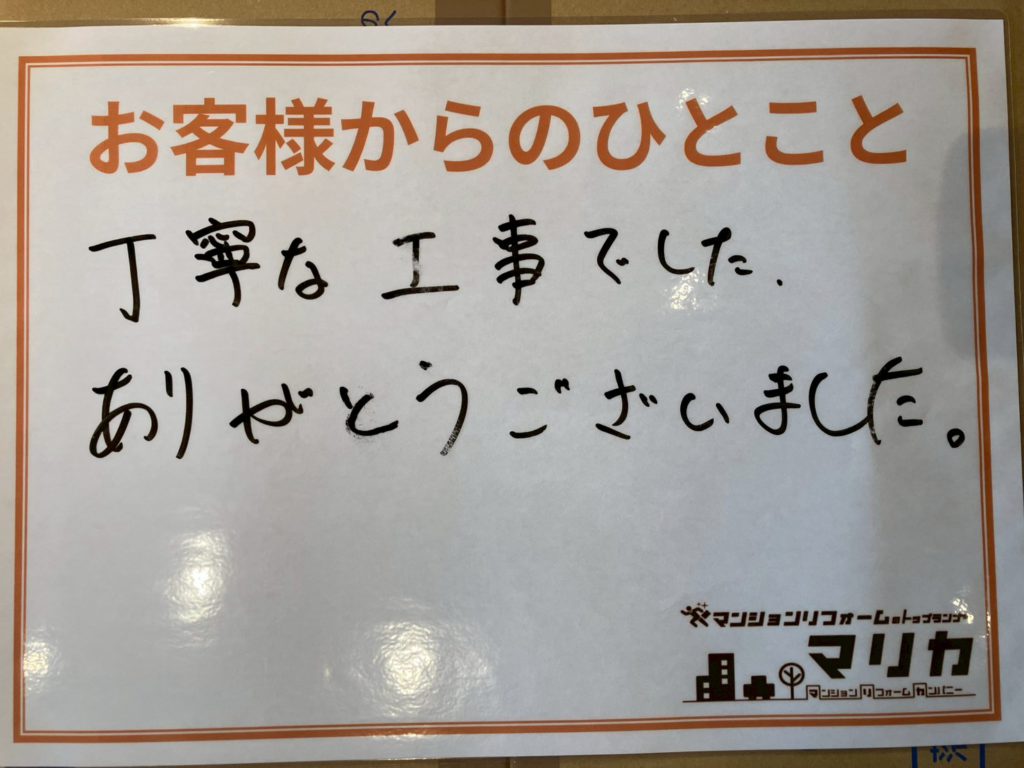 お客様からのひとこと
丁寧な工事でした.
ありがとうございました。
マンションリフォームのトップランナー
マリカ
マンションリフォームカンパニー
様